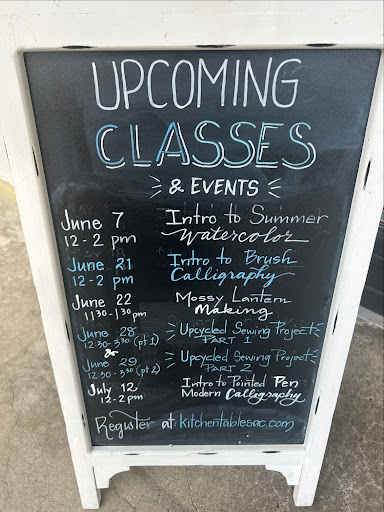 UPCOMING
CLASSES
& EVENTS
June 7 Intro to Summer
12-2 pm Watercolor
June 21 Intro to Brush
12-2 pm Calligraphy
June 22 Mossy Lantern
1130-130pm Making
June 28 Upcycled Sewing Project
12:30-3:30 (pt 1) PART 1
&
June 29 Upcycled Sewing Project
12:30-3:30 (pt 2) PART 2
July 12 Intro to Pointed Pen
12-2 pm Modern Calligraphy
Register at: kitchentablesac.com